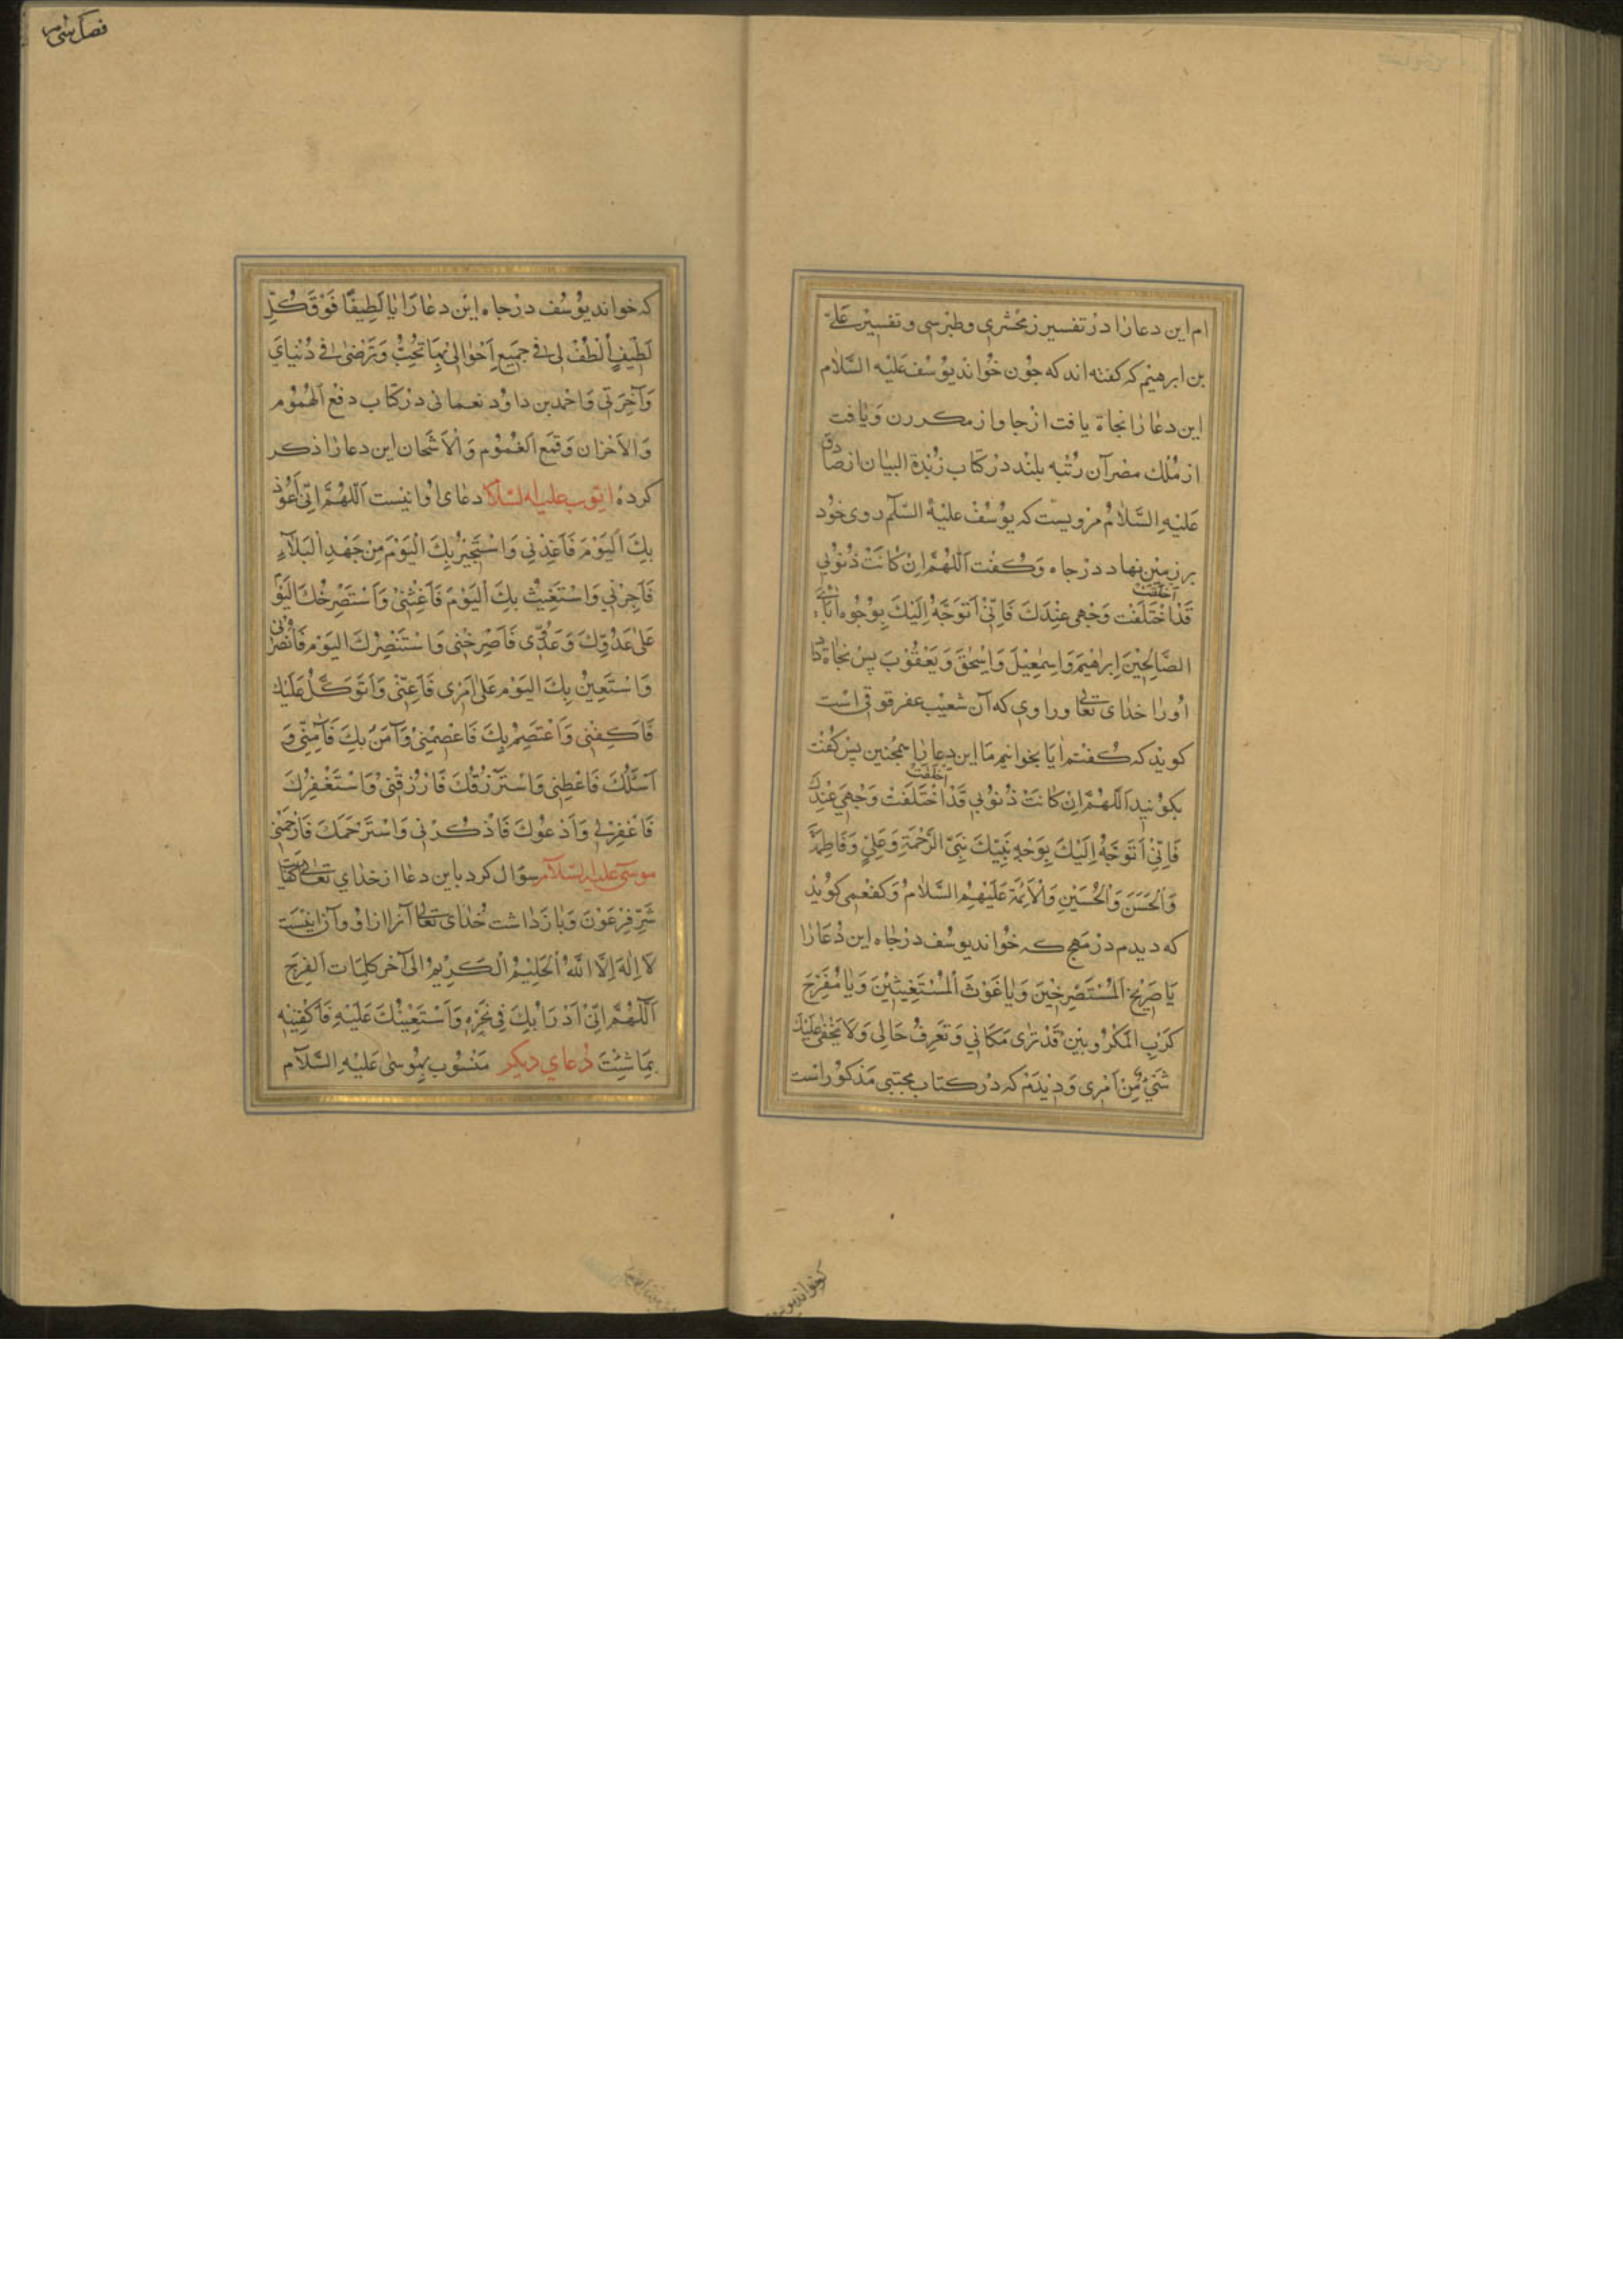 ام این دعارا در تفسیر زمخشری و طبرسی و تفسیر علی
بن ابرهیم که کفته اند که چون خواند یوسف علیه السلام
این دعارا نجاة یافت از چاه و از مکر زن و یافت
از ملک مصر آن رتبه بلند در کتاب زبدة البیان از صادق
علیه السلام مرویست که یوسف علیه السلم روی خود
بر زمین نهاد در چاه و گفت اللهم ان كانت ذنوبي
اخلقت
قد اختلفت وجهي عندك فاني اتوجه اليك بوجوه آبائي
الصالحين ابرهيم واسمعيل واسحق ويعقوب پس نجاة داد
اورا خدای تعالی و راوی که آن شعیب عقرقوقی است
کوید که گفتم ایا بخوانیم ما این دعارا همچنین پس گفت
اخلقت
بکوئید اللهم ان كانت ذنوبي قد اختلفت وجهي عندك
فاني اتوجه اليك بوجه نبيك نبي الرحمة وعلي وفاطمة
والحسن والحسين والائمة عليهم السلام و کفعمی کوید
که دیدم در مهج که خواند یوسف در چاه این دعارا
يا صريخ المستصرخين ويا غوث المستغيثين ويا مفرج
كرب المكروبين قد ترى مكاني وتعرف حالي ولا يخفى عليك
شيء من امري و دیدم که در کتاب مجتبی مذکور است
که خواند یو
فصل سی
که خواند یوسف در چاه این دعارا يا لطيفا فوق كل
لطيف الطف لي في جميع احوالي بما تحب وترضى في دنياي
وآخرتي و احمد بن داود نعمانی در کتاب دفع الهموم
والاحزان وقمع الغموم والاشجان این دعارا ذکر
کرده ایوب علیه السلام دعای او اینست اللهم اني اعوذ
بك اليوم فاعذني واستجير بك اليوم من جهد البلاء
فاجرني واستغيث بك اليوم فاغثني واستصرخك اليوم
على عدوك وعدوي فاصرخني واستنصرك اليوم فانصرني
واستعين بك اليوم على امري فاعني واتوكل عليك
فاكفني واعتصم بك فاعصمني وآمن بك فآمني و
اسئلك فاعطني واسترزقك فارزقني واستغفرك
فاغفر لي وادعوك فاذكرني واسترحمك فارحمني
موسی علیه السلام سؤال کرد باین دعا از خدای تعالی کفایت
شر فرعون و باز داشت خدای تعالی آنرا از او و آن اینست
لا اله الا الله الحليم الكريم الى آخر كلمات الفرج
اللهم اني ادرا بك في نحره واستعينك عليه فاكفنيه
بما شئت دعای دیکر منسوب بموسی علیه السلام